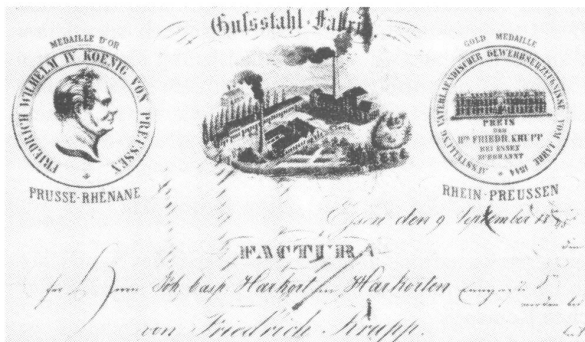 Gußstahl-Fabrik
MEDAILLE D'OR
FRIEDRICH WILHELM IV KOENIG VON PREUSSEN
PRUSSE-RHENANE
GOLD MEDAILLE
AUSSTELLUNG VATERLAENDISCHER GEWERBSERZEUGNISSE VOM JAHRE 1844
PREIS
DER
HRN FRIEDR KRUPP
BEI ESSEN
ZUERKANNT
RHEIN-PREUSSEN
Essen den 9 September 18
FACTURA
für Herrn Joh. Casp. Harkort Harkorten
von Friedrich Krupp.